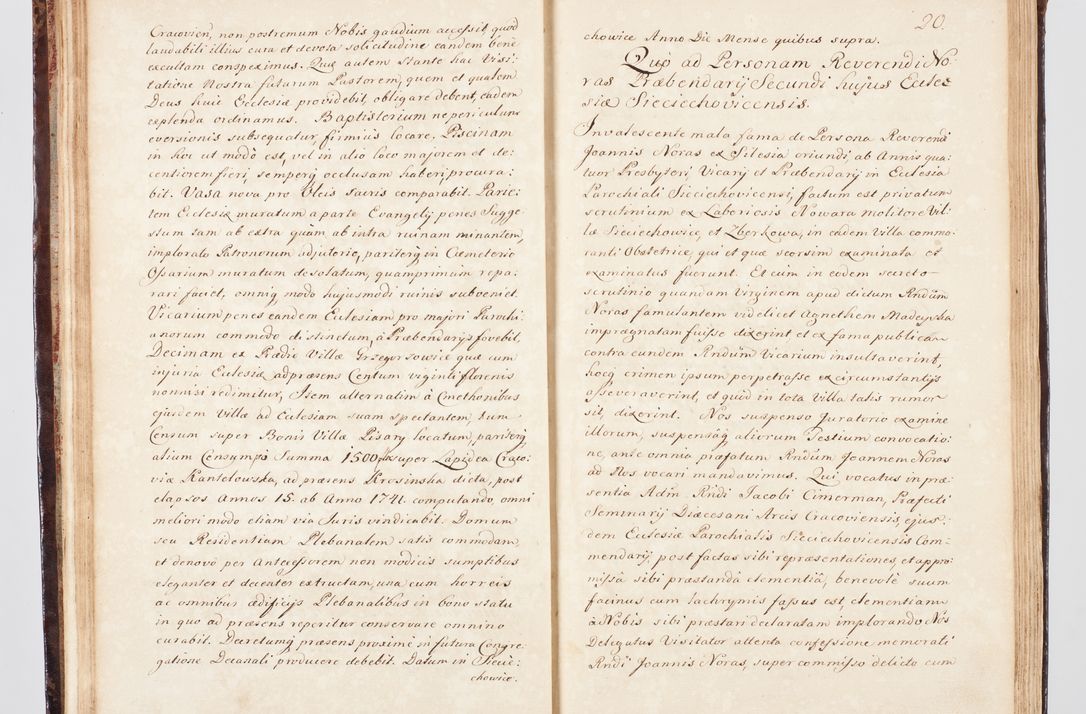 Cracovien, non postremum Nobis gaudium accessit, quod
laudabili illius cura et devota solicitudine eandem bene
excultam conspeximus. Quæ autem stante hac Visi:
tatione Nostra futurum Pastorem, quem et qualem
Deus huic Ecclesiæ providebit, obligare debent, eadem
explenda ordinamus. Baptisterium ne periculum
eversionis subsequatur, firmius locare. Piscinam
in hoc ut modo est, vel in alio loco majorem et de:
centiorem fieri, semperq̃ occlusam haberi, procura:
bit. Vasa nova pro Oleis sacris comparabit. Parie:
tem Ecclesiæ muratum a parte Evangelij penes Sugge:
stum tam ab extra quàm ab intra ruinam minantem,
implorato Patronorum adjutorio, pariterq̃ in Cæmeterio
Ossarium muratum desolatum, quamprimum repa:
rari faciet, omniq̃ modo hujusmodi ruinis subveniet.
Vicarium penes eandem Ecclesiam, pro majori Parochi:
anorum commodo distinctum, à Præbendarijs fovebit.
Decimam ex Prædio Villæ Grzegorzowice quæ cum
injuria Ecclesiæ ad præsens Centum viginti florenis
nonnisi redimitur, Item alternatim à Cmethonibus
ejusdem Villæ ad Ecclesiam suam spectantem, tum
Censum super Bonis Villæ Pisary locatum, pariterq̃
alium Censum pã Summa 1500 super Lapidea Craco:
viæ Kantelowska, ad præsens Krosinska dicta, post
elapsos Annos 15. ab Anno 1741. computando, omni
meliori modo etiam via Juris vindicabit. Domum
seu Residentium Plebanalem satis commodam
et denovò per Antecessorem non modicis sumptibus
eleganter et decenter extructam, una cum horreis
ac omnibus ædificijs Plebanalibus in bono statu
in quo ad præsens reperitur conservare omnino
curabit. Decretumq̃ præsens proximè in futura Congre:
gatione Decanali producere debebit. Datum in Siecie:
chowice.
20.
chowice Anno Die Mense quibus supra.
Quo ad Personam Reverendi No:
ras Præbendarij Secundi hujus Eccle:
siæ Sieciechovicensis.
Invalescente mala fama de Persona Reverendi
Joannis Noras ex Silesia oriundi, ab Annis qua:
tuor Presbyteri Vicarij et Præbendarij in Ecclesia
Parochiali Sieciechovicensi, factum est privatum
scrutinium ex Laboriosis Nowara molitore Vil:
læ Sieciechowice, et Zberkowa, in eadem Villa commo:
ranti Obstetrice, qui et quæ seorsim examinata et
examinatus fuerunt. Et cùm in eodem secreto
scrutinio quandam Virginem apud dictum Rndũm
Noras famulantem videlicet Agnethem Madeyska
imprægnatam fuisse dixerint et ex fama publica
contra eundem Rndũm Vicarium insultaverint,
hocq̃ crimen ipsum perpetrasse ex circumstantijs
asseveraverint, et quid in tota Villa talis rumor
sit, dixerint. Nos suspenso Juratorio examine
illorum, suspensâq̃ aliorum Testium convocatio:
ne, ante omnia præfatum Rndũm Joannem Noras
ad Nos vocari mandavimus. Qui vocatus in præ:
sentia Adm. Rñdi Jacobi Cimerman, Præfecti
Seminarij Diæcesani Arcis Cracoviensis, ejus:
dem Ecclesiæ Parochialis Sieciechovicensis Com:
mendarij, post factas sibi repræsentationes, et appro:
missâ sibi præstandâ clementiâ, benevolè suum
facinus cum lachrymis fassus est, clementiam
à Nobis sibi præstari declaratam implorando. Nos
Delegatus Visitator attenta confessione memorati
Rndi Joannis Noras, super commisso delicto cum